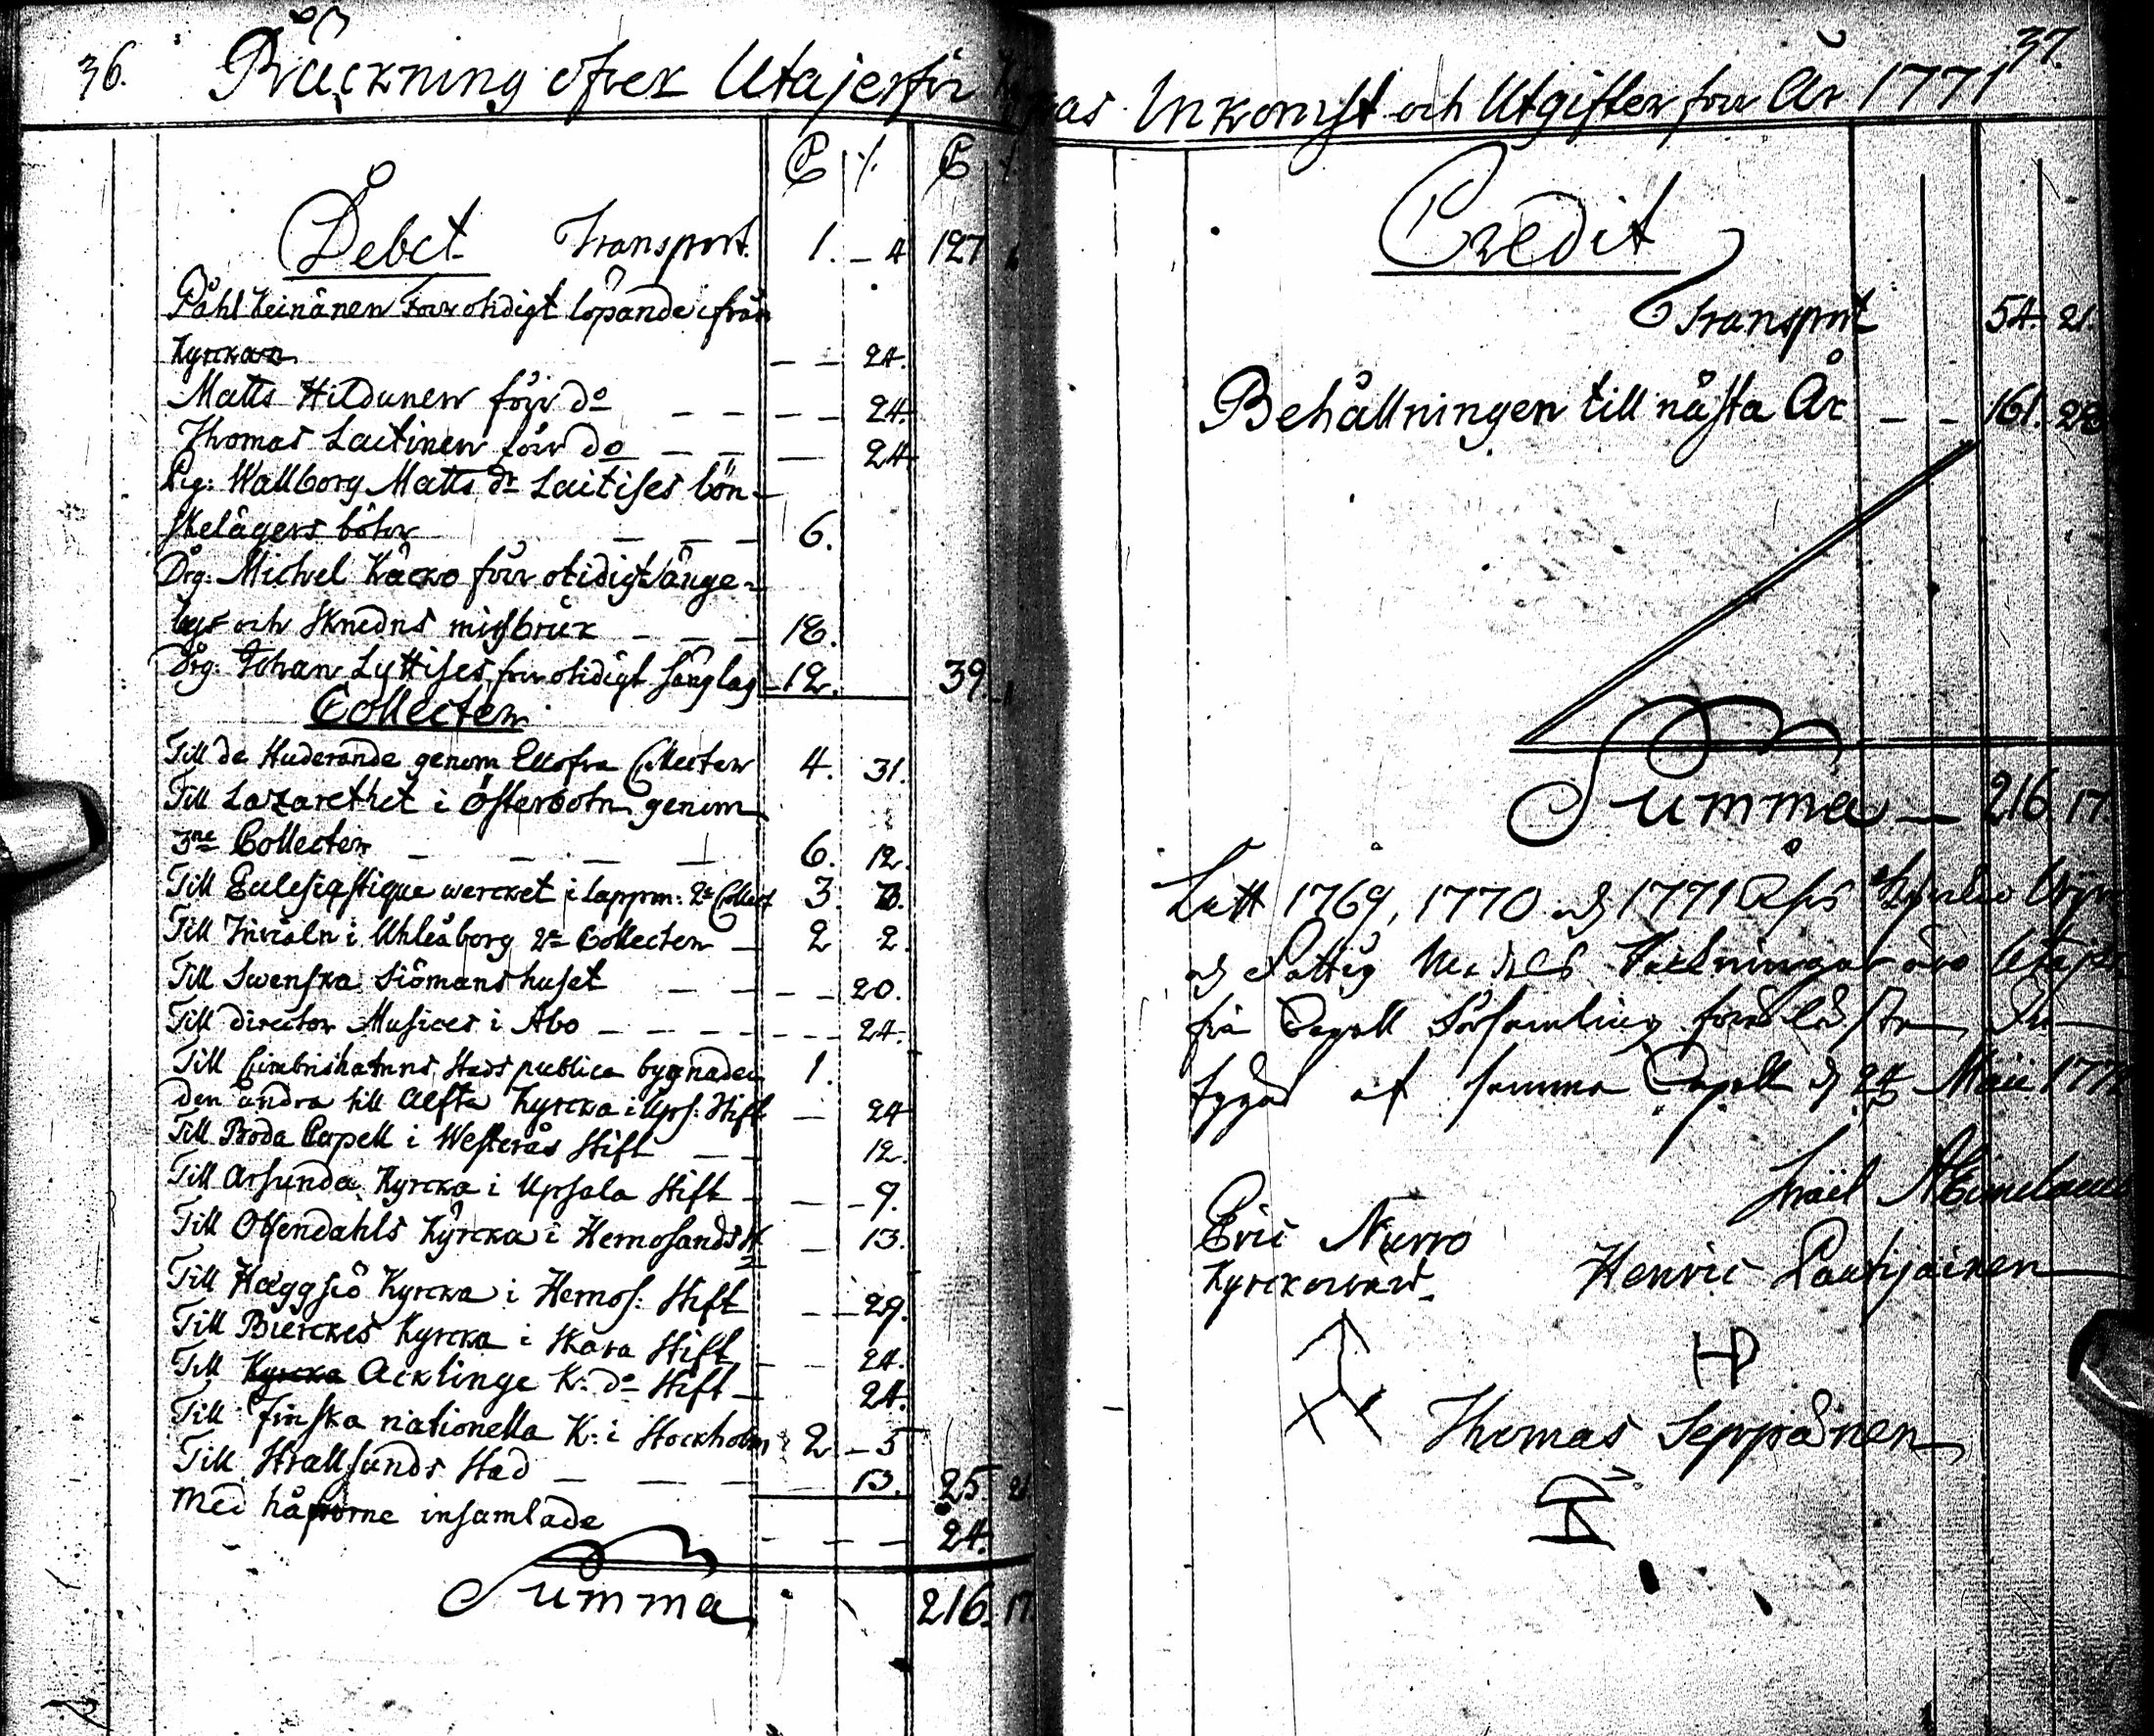 36.
Räckning öfver Utajerfvi
₵ /. ₵ /.
Debet Transport. 1. - 4 127
Påhl Keinänen för otidigt löpande ifrån
Kyrckan - - 24.
Matts Hildunen för do - - - - 24.
Thomas Laitinen för do - - - 24
Pig: Wallborg Matts dr Laitises lön-
skelägers böter - - - 6.
Drg: Michel Käcko för otidigt sänge-
lag och Sknedns missbruk - - - 18.
Drg: Johan Lyttises för otidigt sänglag 12. 39.
Collecter
Till de Huderande genom Collecter 4. 31.
Till Lazarethet i Österbotn genom
3ne Collecter - - - - 6. 12.
Till Eclesiastique wercket i Lappm: 2e Collect 3.
Till i Uhleåborg 2e Collecter - 2 2.
Till Swenska Siömanshuset - - - - 20.
Till director Musices i Åbo - - - - - - 24.
Till Cimbrishamns Stads publica bygnader 1.
den andra till Alfta Kyrcka i Ups: Stift - 24
Till Boda Capell i Westerås Stift - - 12.
Till Årsunda Kyrcka i Upsala Stift - - - 9.
Till Ottendahls Kyrcka i Hernosands St - 13.
Till Häggsiö Kyrcka i Hernos: Stift - - 29.
Till Bierckes Kyrcka i Skara Stift - - 24.
Till Kyrcka Acklinge K: do Stift - 24.
Till Finska nationella K: i Stockholm 2. - 5
Till Strallsunds Stad - - - - 13. 25. 21
Med håfvorne insamlade - - - 24.
Summa 216. 17.
37.
kas Inkomst och Utgifter för År 1771
Credit
Transport 54. 21.
Behållningen till nästa År - - 161. 28
Summa - 216. 17.
Sett 1769, 1770 och 1771 Års
och Fattig Medels Räkningar öfver Utajer
fvi Capell Församling
af samma Capell d 24 Maii 1772
Eric Nurro
Kyrckovärd
Henric Pautjainen
HP
Thomas Seppänen